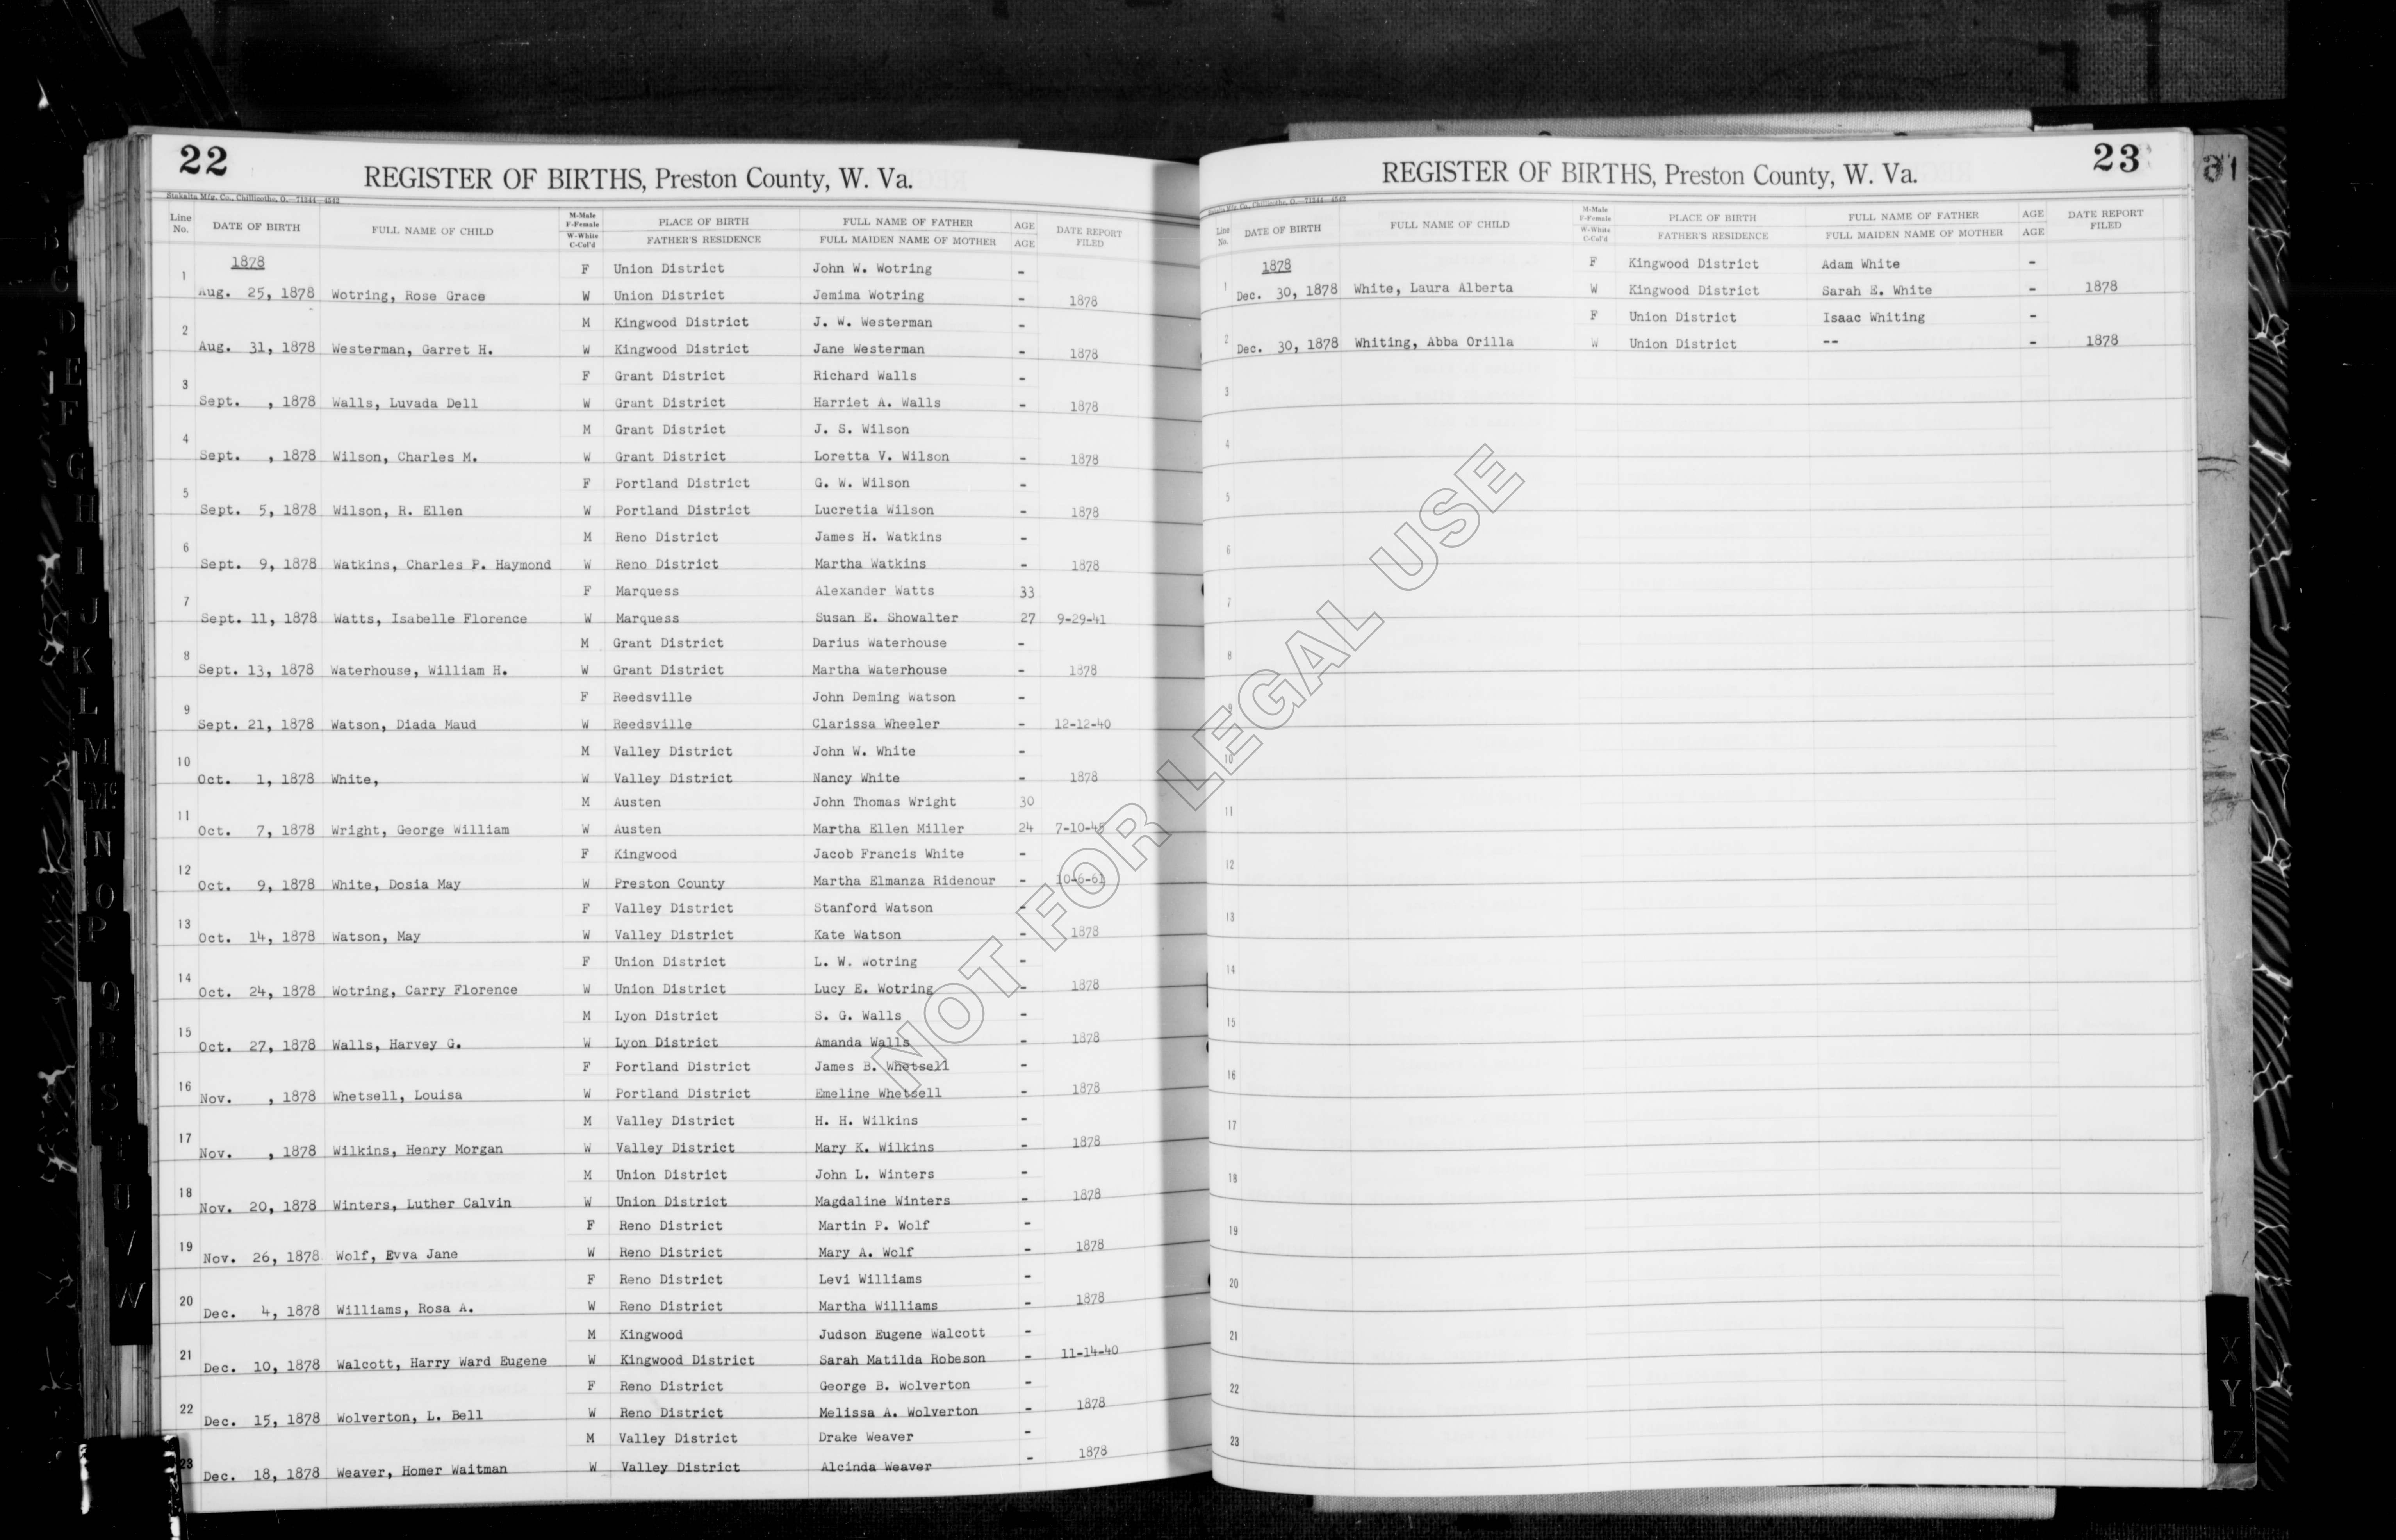 22
REGISTER OF BIRTHS, Preston County, W. Va.
Line No. DATE OF BIRTH FULL NAME OF CHILD M-Male F-Female W-White C-Col'd PLACE OF BIRTH FATHER'S RESIDENCE FULL NAME OF FATHER FULL MAIDEN NAME OF MOTHER AGE AGE DATE REPORT FILED
1878
F Union District John W. Wotring -
1 Aug. 25, 1878 Wotring, Rose Grace W Union District Jemima Wotring - 1878
M Kingwood District J. W. Westerman -
2 Aug. 31, 1878 Westerman, Garret H. W Kingwood District Jane Westerman - 1878
F Grant District Richard Walls -
3 Sept. , 1878 Walls, Luvada Dell W Grant District Harriet A. Walls - 1878
M Grant District J. S. Wilson
4 Sept. , 1878 Wilson, Charles M. W Grant District Loretta V. Wilson - 1878
F Portland District G. W. Wilson -
5 Sept. 5, 1878 Wilson, R. Ellen W Portland District Lucretia Wilson - 1878
M Reno District James H. Watkins -
6 Sept. 9, 1878 Watkins, Charles P. Haymond W Reno District Martha Watkins - 1878
F Marquess Alexander Watts 33
7 Sept. 11, 1878 Watts, Isabelle Florence W Marquess Susan E. Showalter 27 9-29-41
M Grant District Darius Waterhouse -
8 Sept. 13, 1878 Waterhouse, William H. W Grant District Martha Waterhouse - 1878
F Reedsville John Deming Watson -
9 Sept. 21, 1878 Watson, Diada Maud W Reedsville Clarissa Wheeler - 12-12-40
M Valley District John W. White -
10 Oct. 1, 1878 White, W Valley District Nancy White - 1878
M Austen John Thomas Wright 30
11 Oct. 7, 1878 Wright, George William W Austen Martha Ellen Miller 24
F Kingwood Jacob Francis White -
12 Oct. 9, 1878 White, Dosia May W Preston County Martha Elmanza Ridenour - 10-6-61
F Valley District Stanford Watson -
13 Oct. 14, 1878 Watson, May W Valley District Kate Watson - 1878
F Union District L. W. Wotring -
14 Oct. 24, 1878 Wotring, Carry Florence W Union District Lucy E. Wotring - 1878
M Lyon District S. G. Walls -
15 Oct. 27, 1878 Walls, Harvey G. W Lyon District Amanda Walls - 1878
F Portland District James B. Whetsell -
16 Nov. , 1878 Whetsell, Louisa W Portland District Emeline Whetsell - 1878
M Valley District H. H. Wilkins -
17 Nov. , 1878 Wilkins, Henry Morgan W Valley District Mary K. Wilkins - 1878
M Union District John L. Winters -
18 Nov. 20, 1878 Winters, Luther Calvin W Union District Magdaline Winters - 1878
F Reno District Martin P. Wolf -
19 Nov. 26, 1878 Wolf, Evva Jane W Reno District Mary A. Wolf - 1878
F Reno District Levi Williams -
20 Dec. 4, 1878 Williams, Rosa A. W Reno District Martha Williams - 1878
M Kingwood Judson Eugene Walcott -
21 Dec. 10, 1878 Walcott, Harry Ward Eugene W Kingwood District Sarah Matilda Robeson - 11-14-40
F Reno District George B. Wolverton -
22 Dec. 15, 1878 Wolverton, L. Bell W Reno District Melissa A. Wolverton - 1878
M Valley District Drake Weaver -
23 Dec. 18, 1878 Weaver, Homer Waitman W Valley District Alcinda Weaver - 1878
23
REGISTER OF BIRTHS, Preston County, W. Va.
Line No. DATE OF BIRTH FULL NAME OF CHILD M-Male F-Female W-White C-Col'd PLACE OF BIRTH FATHER'S RESIDENCE FULL NAME OF FATHER FULL MAIDEN NAME OF MOTHER AGE AGE DATE REPORT FILED
1878
F Kingwood District Adam White -
1 Dec. 30, 1878 White, Laura Alberta W Kingwood District Sarah E. White - 1878
F Union District Isaac Whiting -
2 Dec. 30, 1878 Whiting, Abba Orilla W Union District -- - 1878
3
4
5
6
7
8
9
10
11
12
13
14
15
16
17
18
19
20
21
22
23
NOT FOR LEGAL USE
E
F
G
H
I
J
K
L
M
Mc
N
O
P
Q
R
S
T
U
V
W
X
Y
Z